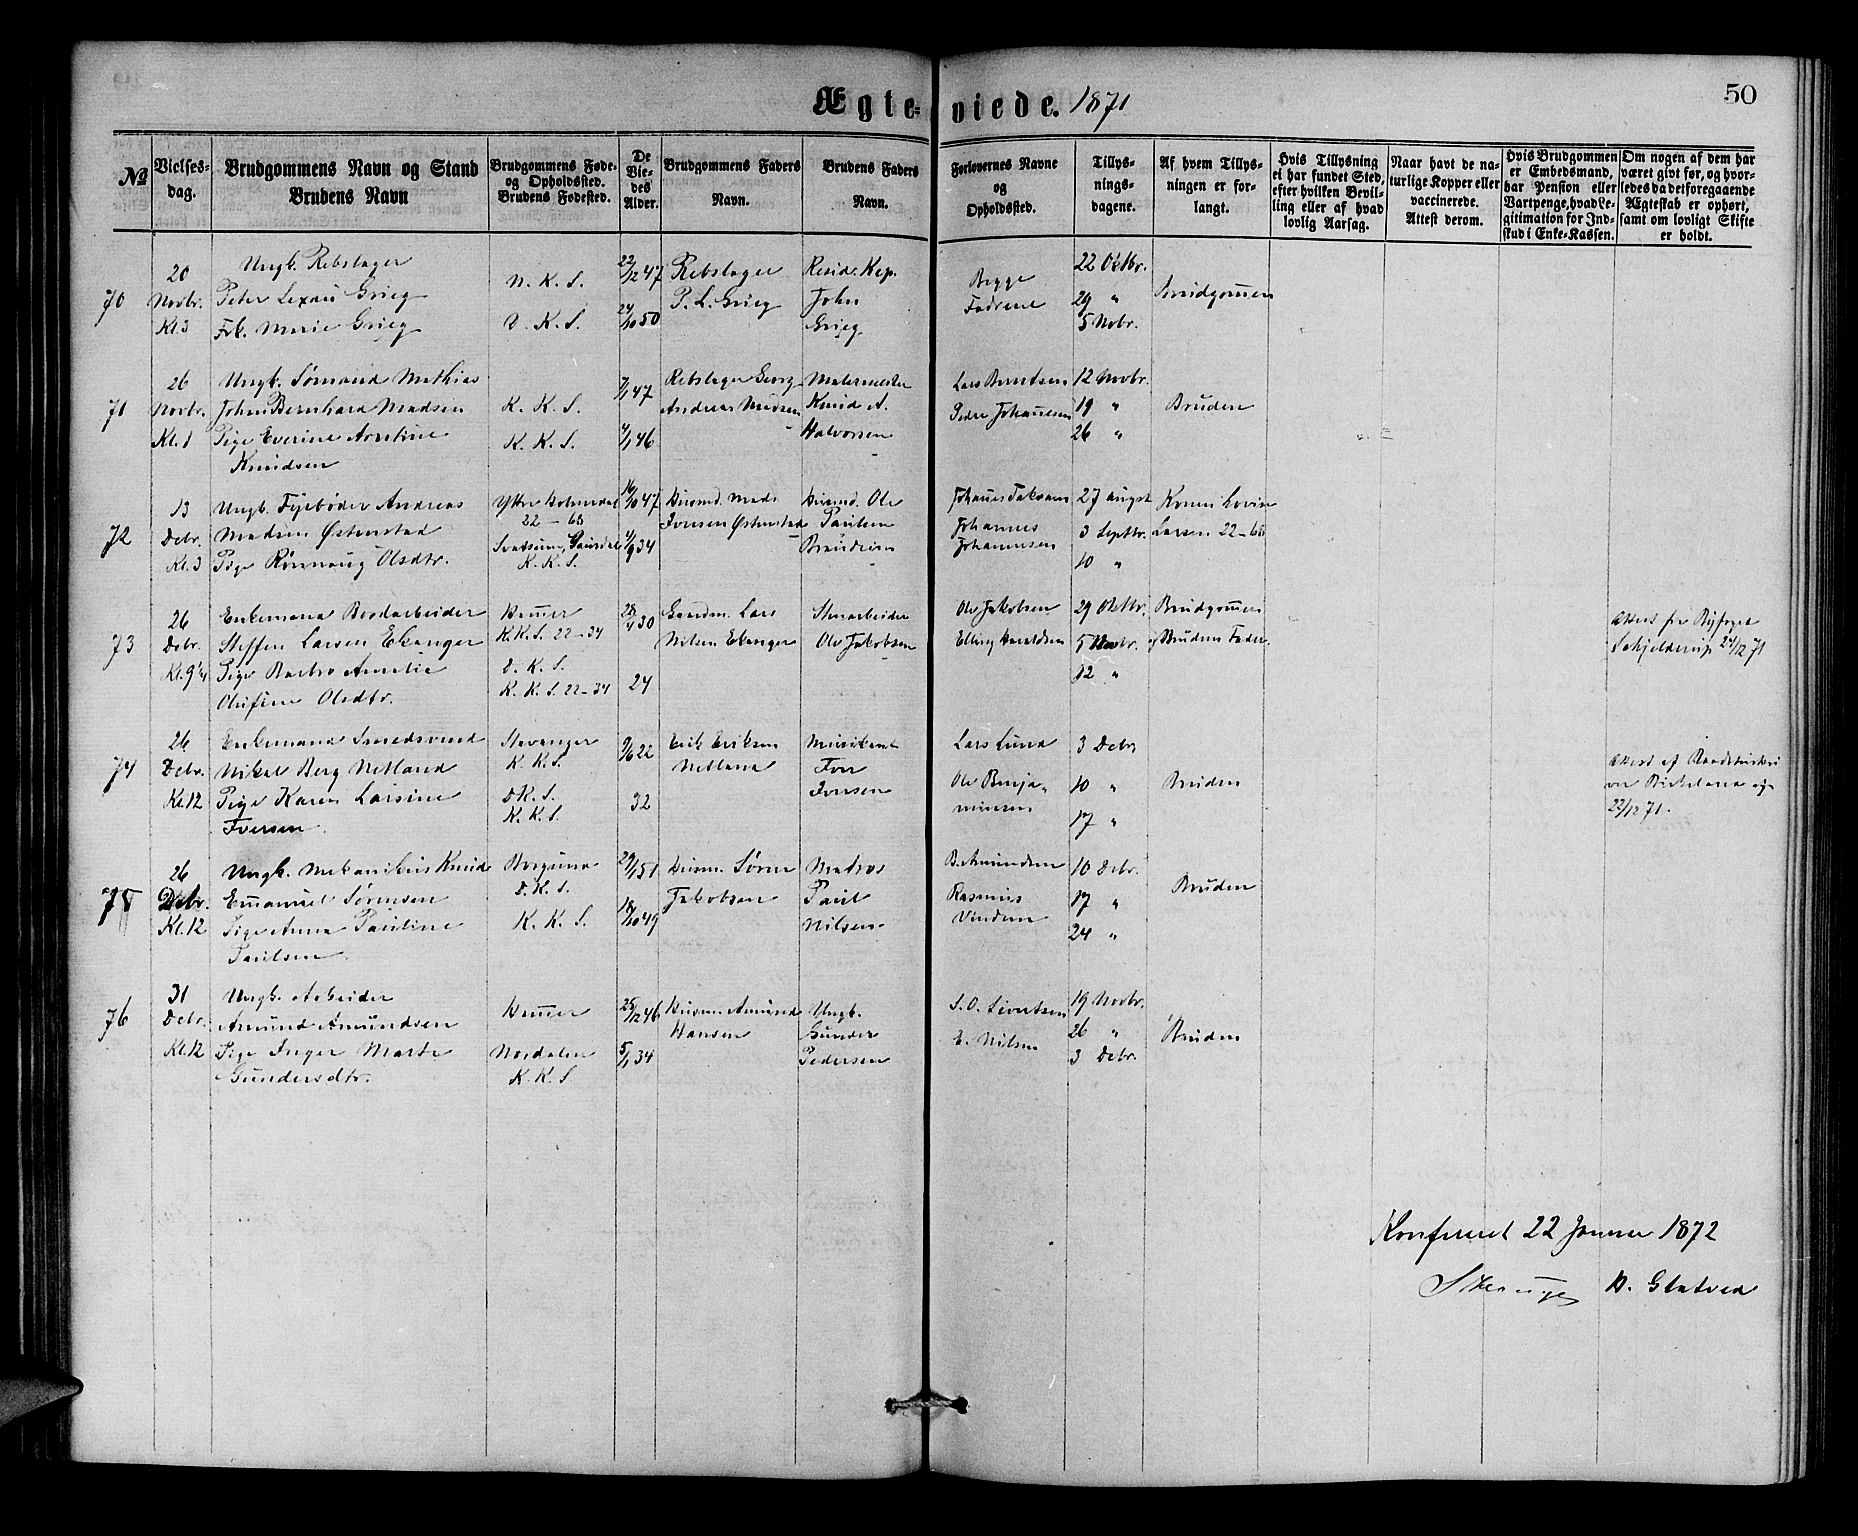 Ægteviede. 1871
50
№
Vielses-
dag.
Brudgommens Navn og Stand
Brudens Navn
Brudgommens Føde-
og Opholdssted.
Brudens Fødested.
De
Vie-
des
Alder.
Brudgommens Faders
Navn.
Brudens Faders
Navn.
Forlovernes Navne
og
Opholdssted.
Tillys-
nings-
dagene.
Af hvem Tillys-
ningen er for-
langt.
Hvis Tillysning
ei har fundet Sted,
efter hvilken Bevil-
ling eller af hvad
lovlig Aarsag.
Naar havt de na-
turlige Kopper eller
vaccinerede.
Attest derom.
Hvis Brudgommen
er Embedsmand,
har Pension eller
Vartpenge, hvad Le-
gitimation for Ind-
skud i Enke-Kassen.
Om nogen af dem har
været givt før, og hvor-
ledes da det foregaaende
Ægteskab er ophørt,
samt om lovligt Skifte
er holdt.
70
20
Novbr.
Kl. 3
Ungk. Rebslager
Peter Lexau Grieg
Frk. Marie Grieg
N. K. S.
D. K. S.
22/12 47
24/10 50
Rebslager
P. L. Grieg
Resid. Kap.
John
Grieg
Begge
Fædrene
22 Oktbr.
29 "
5 Novbr.
Brudgommen
71
26
Novbr.
Kl. 1
Ungk. Sømand Mathias
Johan Bernhard Madsen
Pige Everine Aneline
Knudsen
K. K. S.
K. K. S.
7/1 47
4/1 46
Rebslager Georg
Andreas Madsen
Malermester
Knud A.
Halvorsen
Lars Berntsen
Peder Johannesen
12 Novbr.
19 "
26 "
Bruden
72
13
Debr.
Kl. 3
Ungk. Fyrbøder Andreas
Madsen Østenstad
Pige Rønnaug Olsdtr.
Yttre Holmedal
22 - 68
Svatsum, Gausdal
K. K. S.
16/10 47
1/9 34
Husmd. Mads
Iversen Østenstad
Husmd. Ole
Paulsen
Johannes
Johannesen
27 Augst
3 Septbr.
10 "
Konen Lovise
Larsen 22-68
73
26
Debr.
Kl. 9 1/4
Enkemand Bordarbeider
Steffen Larsen Ekanger
Pige Barbro Amalie
Olufine Olsdtr.
Hammer
K. K. S. 22-34
D. K. S.
K. K. S. 22-34
28/4 30
24
Gaardm. Lars
Nilsen Ekanger
Stenarbeider
Ole Jakobsen
Ole Jakobsen
Elling Haraldsen
29 Oktbr.
5 Novbr.
12 "
Brudgommen
og Brudens Fader
Attest fra Byfoged
Schjelderup 24/12 71
74
26
Debr.
Kl. 12
Enkemand Smedsvend
Nikal Berg Netland
Pige Karen Larsine
Iversen
Stavanger
K. K. S.
D. K. S.
K. K. S.
9/6 22
32
Erik Eriksen
Netland
Musikant
Iver
Iversen
Lars Lund
Ole Benja-
minsen
3 Debr.
10 "
17 "
Bruden
22/12 71.
75
26
Debr.
Kl. 12
Ungk. Mekanikus Knud
Emanuel Sørensen
Pige Anna Pauline
Paulsen
Borgund
D. K. S.
K. K. S.
29/1 51
18/10 49
Husm. Søren
Jakobsen
Matros
Paul
Nilsen
B. Amundsen
Rasmus
Vindenes
10 Debr.
17 "
24 "
Bruden
76
31
Debr.
Kl. 12
Ungk. Arbeider
Amund Amundsen
Pige Inger Marte
Gundersdtr.
Hammer
Nordalen
K. K. S.
25/12 46
5/1 34
Husm. Amund
Hansen
Ungk.
Gunder
Pedersen
S. O. Sivertsen
E. Nilsen
19 Novbr.
26 "
3 Debr.
Bruden
Konfereret 22 Januar 1872
H. Glatved